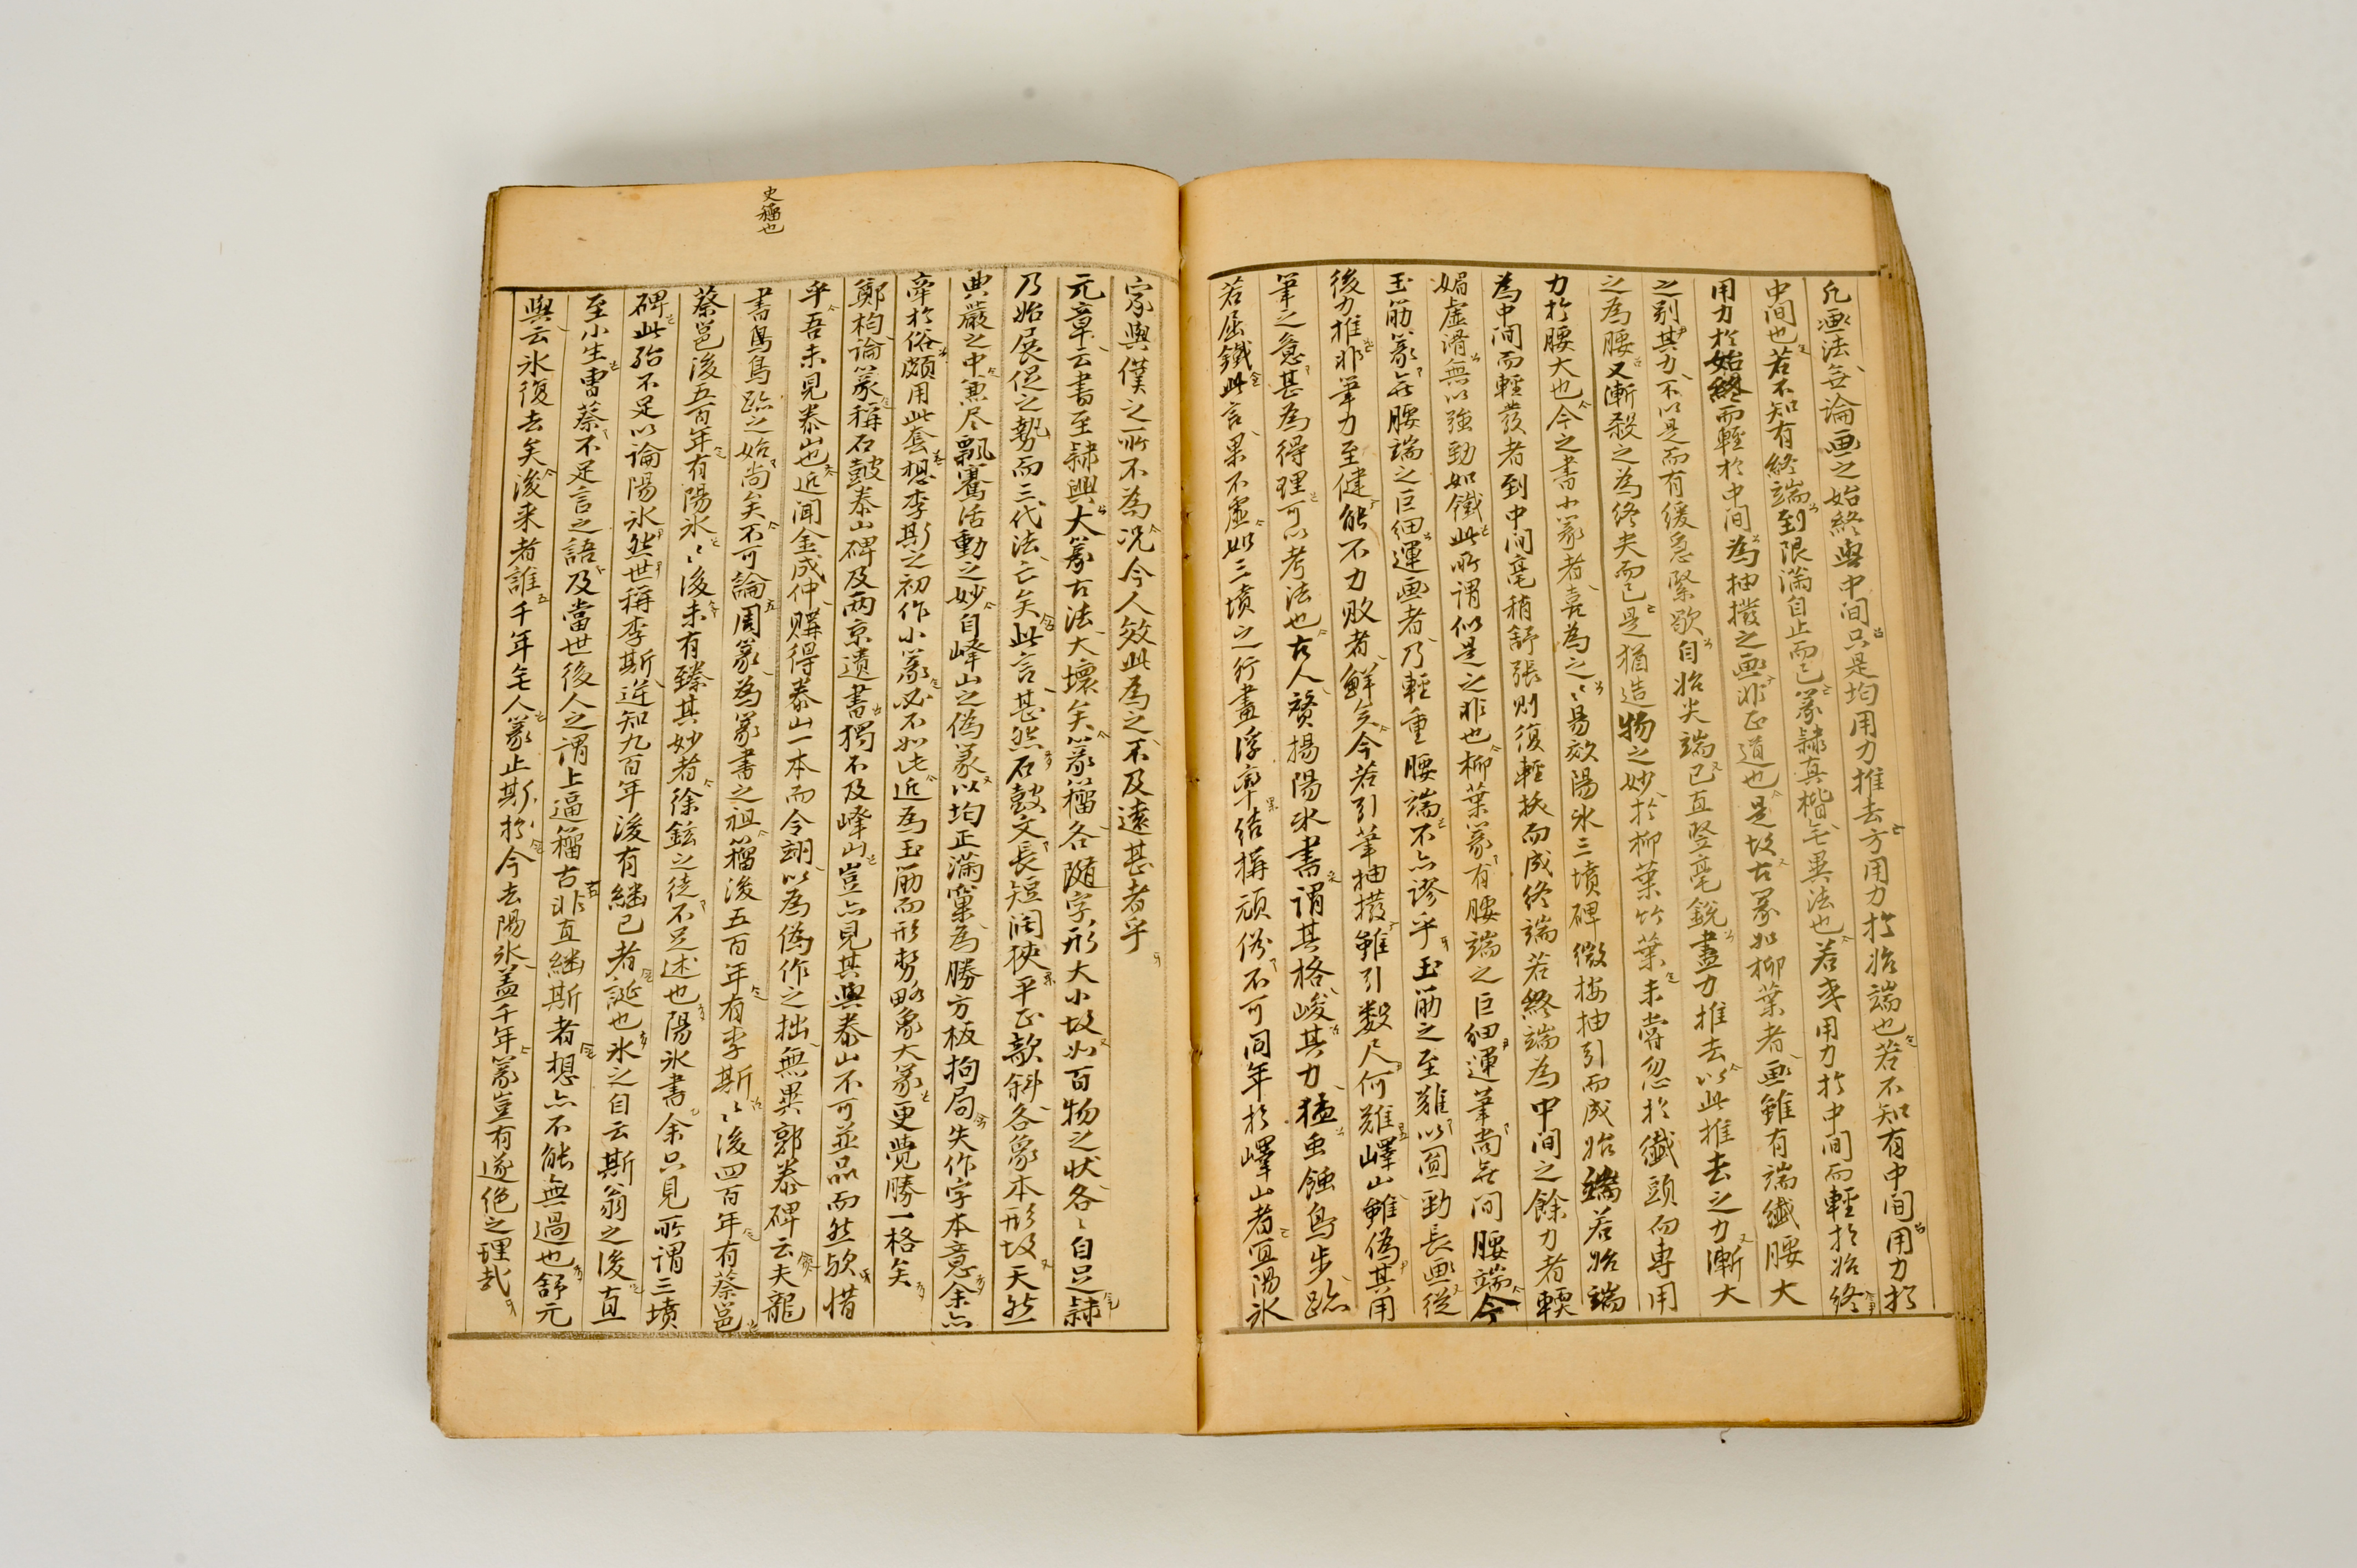 凡畫法無論畫之始終與中間只是均用力推去方用力於始端也若不知有中間用力於
中間也若不知有終端到限滿自止而已篆隸真楷無異法也若或用力於中間而輕於始終
用力於始終而輕於中間為抽撥之畫非正道也是故古篆如柳葉者畫雖有端纖腰大
之別其力不以是而有緩急緊歇自始尖端已直竪毫銳盡力推去以此推去之力漸大
之為腰又漸殺之為終夫而已是猶造物之妙於柳葉竹葉未嘗忽於纖頭而專用
力於腰大也今之書小篆者喜為之〻易效陽氷三墳碑微按抽引而成始端若始端
為中間而輕發者到中間毫稍舒張則復輕抶而成終端若終端為中間之餘力者輭
媚虛滑無以強勁如鐵此所謂似是之非也柳葉篆有腰端之巨細運筆尚無間腰端今
玉筋篆無腰端之巨細運畫者乃輕重腰端不亦謬乎玉筋之至難以圓勁長畫從
後力推非筆力至健能不力敗者鮮矣今若引筆抽撥雖引數尺何難嶧山雖偽其用
筆之意甚為得理可以考法也古人贊揚陽氷書謂其格峻其力猛虫蝕鳥步跡
若屈鐵此言果不虛如三墳之行畫浮率結構頑俗不可同年於嶧山者宜陽氷
史籀也
家與僕之所不為況今人效此為之不及遠甚者乎
元章云書至隸興大篆古法大壞矣篆籀各隨字形大小故如百物之狀各〻自足隸
乃始展促之勢而三代法亡矣此言甚然石鼓文長短闊狹平正欹斜各象本形故天然
典嚴之中兼尽飄騫活動之妙自嶧山之偽篆以均正滿窠為勝方板拘局失作字本意余亦
牽於俗頗用此套想李斯之初作小篆必不如此近為玉筋而形勢略象大篆更覺勝一格矣
鄭枃論篆稱石鼓泰山碑及兩京遺書獨不及嶧山豈亦見其與泰山不可並品而然歟惜
乎吾未見泰山也近聞金成仲購得泰山一本而令翊以為偽作之拙無異郭泰碑云夫龍
書鳥鳥跡之始尚矣不可論周篆為篆書之祖籀後五百年有李斯〻後四百年有蔡邕
蔡邕後五百年有陽氷〻後未有臻其妙者徐鉉之徒不足述也陽氷書余只見所謂三墳
碑此殆不足以論陽氷然世稱李斯逆知九百年後有繼己者誕也氷之自云斯翁之後直
至小生曹蔡不足言之語及當世後人之謂上逼籀古非直繼斯者想亦不能無過也舒元
輿云氷復去矣後来者誰千年無人篆止斯於今去陽氷盖千年篆豈有遂絕之理哉